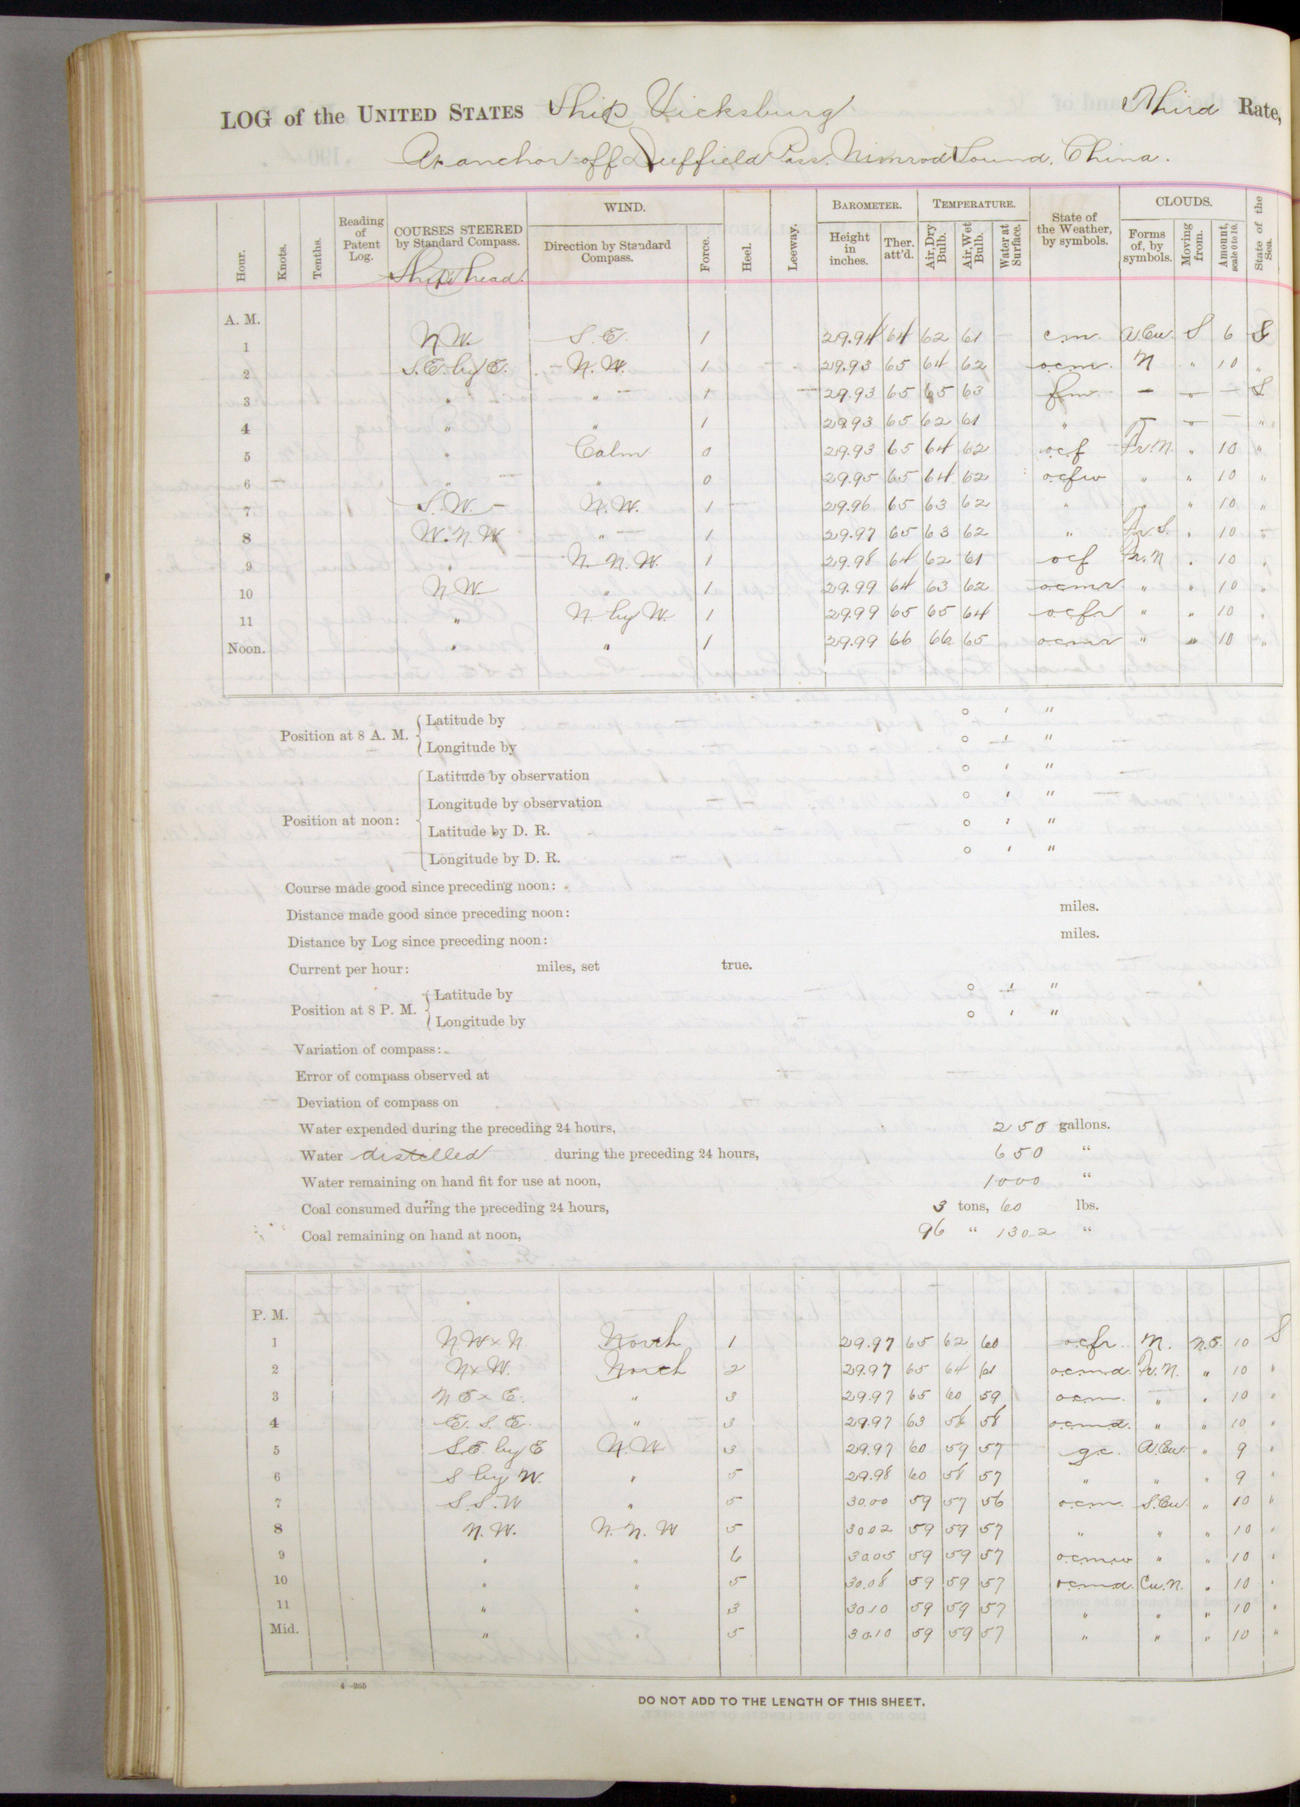 LOG of the UNITED STATES Ship Vicksburg Third Rate,
At anchor off Duffield Pass. Nimrod Sound, China.
Hour. Knots. Tenths. Reading of Patent Log. COURSES STEERED by Standard Compass. Ship's head. WIND. Direction by Standard Compass. Force. Heel. Leeway. BAROMETER. Height in inches. Ther. att'd. TEMPERATURE. Air, Dry Bulb. Air, Wet Bulb. Water at Surface. State of the Weather, by symbols. CLOUDS. Forms of, by symbols. Moving from. Amount, scale 0 to 10. State of the Sea.
A. M.
1 N.W. S. E. 1 29.94 64 62 61 c.m. A.Cu. S 6 S
2 S.E. by E. N.W. 1 29.93 65 64 62 o.c.m. N " 10 "
3 " " 1 29.93 65 65 63 f.m. — — — S
4 " " 1 29.93 65 62 61 " — — — "
5 " Calm 0 29.93 65 64 62 o.c.f Fr.N. " 10 "
6 " " 0 29.95 65 64 62 o.c.f.w " " 10 "
7 S.W. N.W. 1 29.96 65 63 62 " " " 10 "
8 W.N.W " 1 29.97 65 63 62 " Fr S. " 10 -
9 " N.N.W. 1 29.98 64 62 61 o.c.f Fr.N " 10 "
10 N.W. " 1 29.99 64 63 62 o.c.m.r " " 10 "
11 " N by W. 1 29.99 65 65 64 o.c.f.r " " 10 "
Noon. " " 1 29.99 66 66 65 o.c.m.r " " 10 "
Position at 8 A. M. Latitude by ° ' "
Longitude by ° ' "
Position at noon: Latitude by observation ° ' "
Longitude by observation ° ' "
Latitude by D. R. ° ' "
Longitude by D. R. ° ' "
Course made good since preceding noon:
Distance made good since preceding noon: miles.
Distance by Log since preceding noon: miles.
Current per hour: miles, set true.
Position at 8 P. M. Latitude by ° ' "
Longitude by ° ' "
Variation of compass:
Error of compass observed at
Deviation of compass on
Water expended during the preceding 24 hours, 250 gallons.
Water distilled during the preceding 24 hours, 650 "
Water remaining on hand fit for use at noon, 1000 "
Coal consumed during the preceding 24 hours, 3 tons, 60 lbs.
Coal remaining on hand at noon, 96 " 1302 "
P. M.
1 N W x N. North 1 29.97 65 62 60 o.c.f.r. N. N.E. 10 S
2 N x W. North 2 29.97 65 64 61 o.c.m.d. Fr.N. " 10 "
3 N E x E. " 3 29.97 65 60 59 o.c.m. " " 10 "
4 E. S. E. " 3 29.97 63 58 58 o.c.m.d. " " 10 "
5 S.E. by E N.W 3 29.97 60 59 57 g.c. A.Cu. " 9 "
6 S by W. " 5 29.98 60 58 57 " " " 9 "
7 S.S.W " 5 30.00 59 57 56 o.c.m. S.Cu. " 10 "
8 N.W. N.N.W 5 30.02 59 59 57 " " " 10 "
9 " " 6 30.05 59 59 57 o.c.m.w " " 10 "
10 " " 5 30.08 59 59 57 o.c.m.d. Cu.N. " 10 "
11 " " 3 30.10 59 59 57 " " " 10 "
Mid. " " 5 30.10 59 59 57 " " " 10 "
4—265
DO NOT ADD TO THE LENGTH OF THIS SHEET.